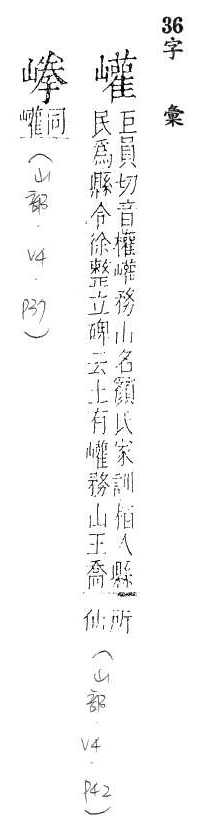 36字彙
巏
巨員切音權巏務山名顏氏家訓栢人縣
民為縣令徐整立碑云土有巏務山王喬
所
仙
(山部.V4.P42)
同
巏
(山部.V4.P37)